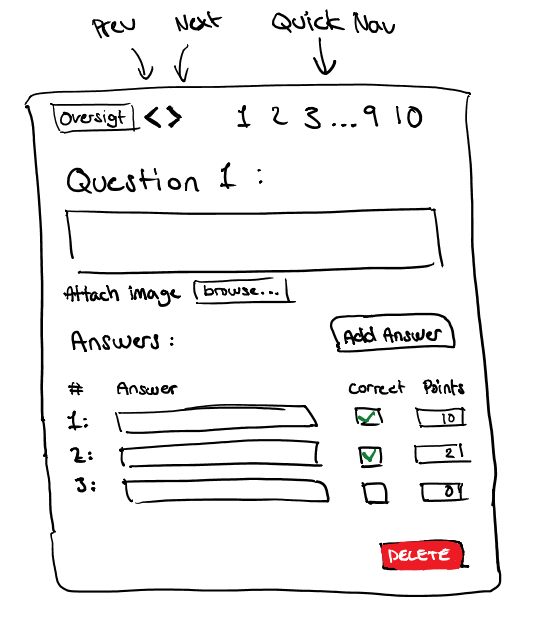 Prev Next Quick Nav
Oversigt < > 1 2 3 ... 9 10
Question 1 :
Attach image browse...
Answers : Add Answer
# Answer Correct Points
1: 10
2: 2
3: 0
DELETE